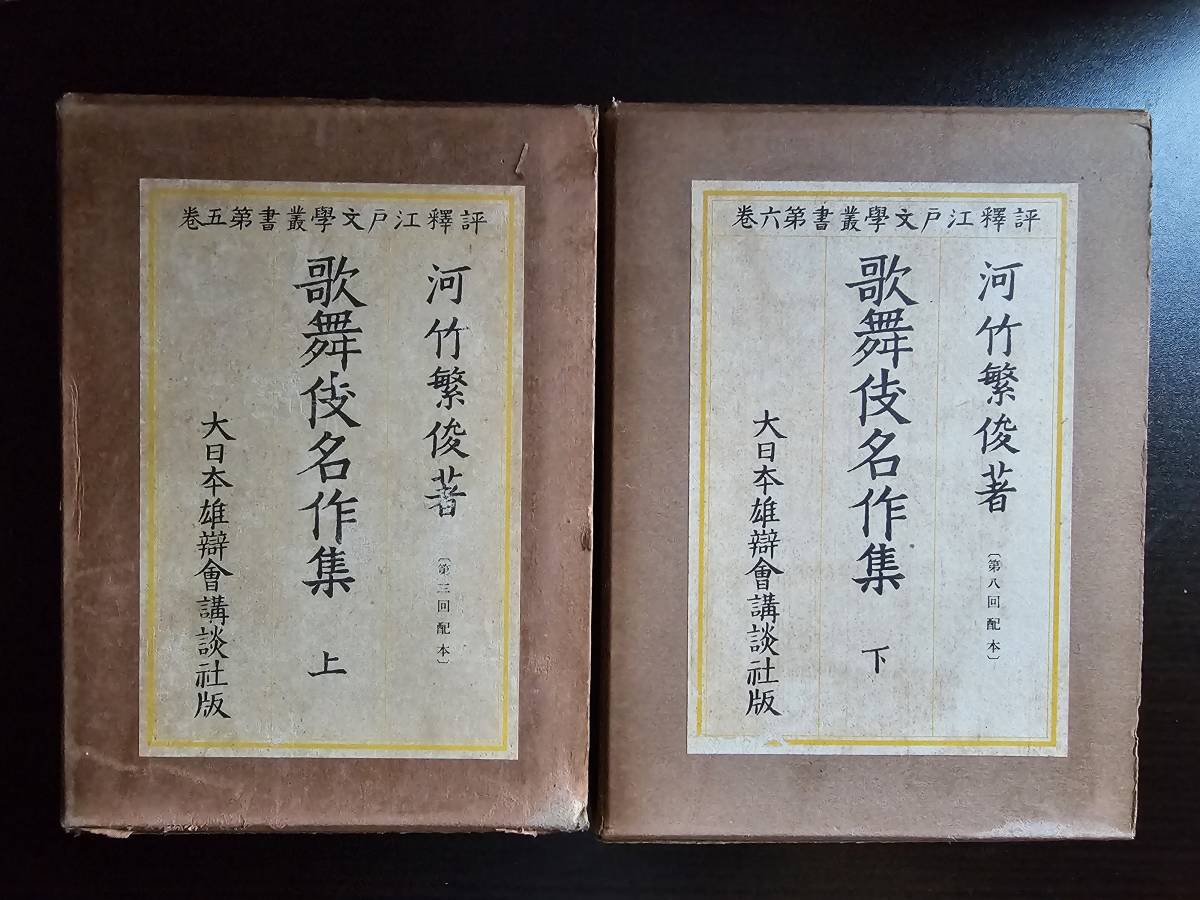 評釋江戸文學叢書第五卷
河竹繁俊著
〔第三回配本〕
歌舞伎名作集
上
大日本雄辯會講談社版
評釋江戸文學叢書第六卷
河竹繁俊著
〔第八回配本〕
歌舞伎名作集
下
大日本雄辯會講談社版